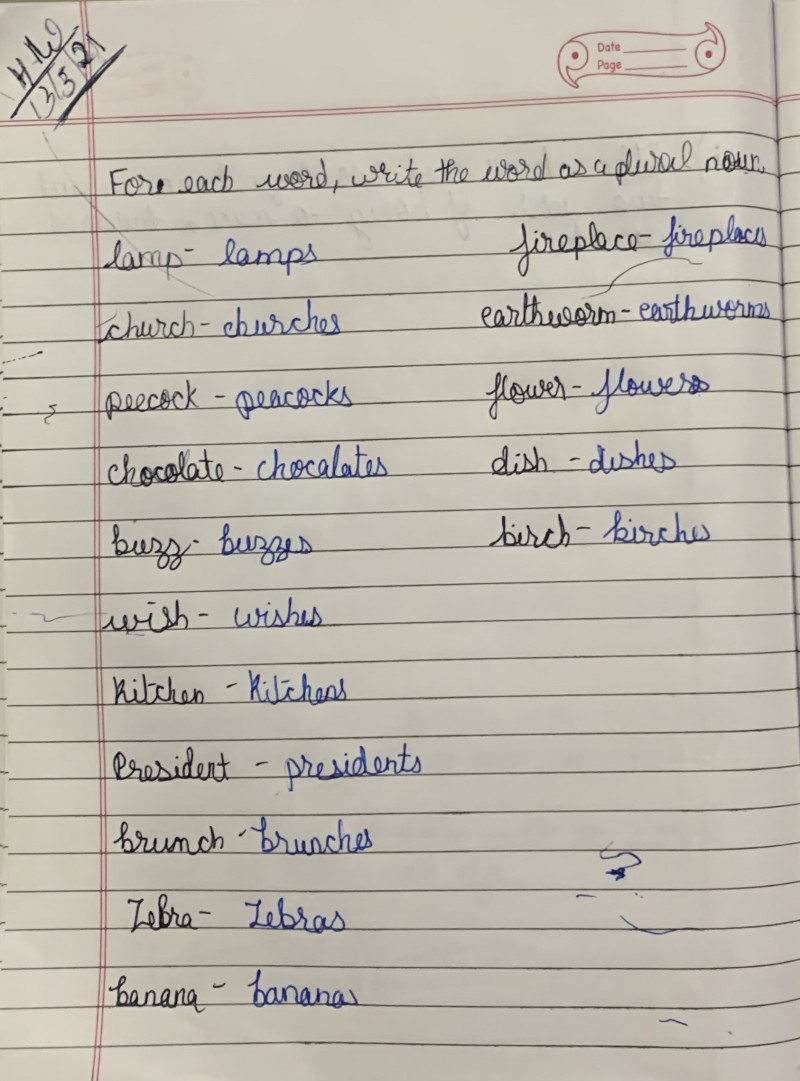 H.W
13/5/21
Date
Page
For each word, write the word as a plural noun.
lamp - lamps
church - churches
peecock - peacocks
chocolate - chocalates
buzz - buzzes
wish - wishes
Kitchen - Kitchens
President - presidents
brunch - brunches
Zebra - Zebras
banana - bananas
fireplace - fireplaces
earthworm - earthworms
flower - flowers
dish - dishes
birch - birches